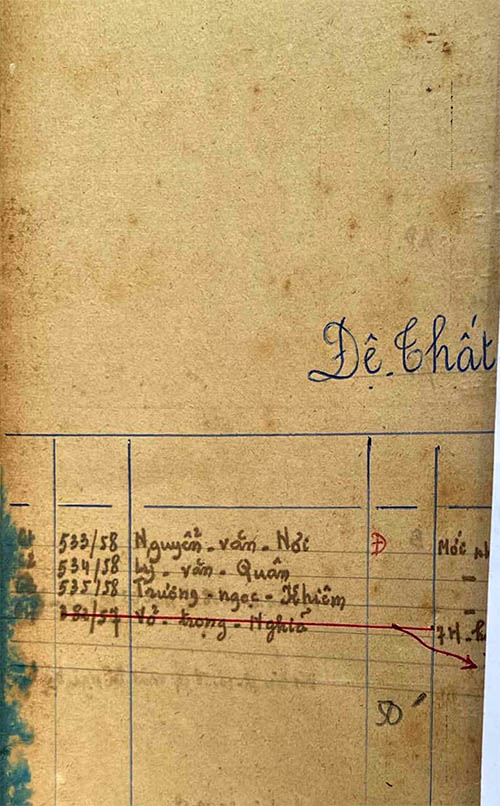 Đệ. Thất
533/58 Nguyễn - văn - Nơi Đ Mới
534/58 Lý - văn - Quân -
535/58 Trương - ngọc - Khiêm -
282/57 Võ - trọng - Nghĩa 7H -
50